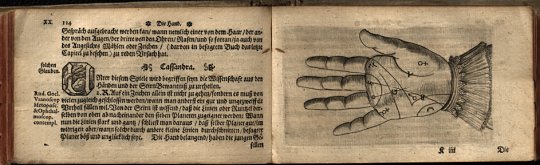 XX. 114 Die Hand.
Gespräch aufgebracht werden kan/ wann nemlich einer von dem Haar/ der an-
der von den Augen/ der dritte von den Ohren/ Nasen/ und so fortan/ ja auch von
des Angesichts Mählen oder Zeichen / (darvon in besagtem Buch das letzte
Capitel zu besehen) zu reden Ursach hat.
Cassandra.
solchen
Glauben.
Unter diesem Spiele wird begriffen seyn die Wissenschafft aus den
Händen und der Stirn
2. R. Auf ein Zeichen allein ist nicht zu gehen/ sondern es muß von
vielen zugleich geschlossen werden/ wann man anderst ein gut und
Urtheil fällen wil. Von der Stirn ist wissend/ daß die Linien oder Runtzel der-
selben von oben abnacheinander den sieben Planeten zugeignet werden: Wann
nun die Linien starck und gantz / schliest man daraus / daß selber Planet gut/ im
widrigen aber/ wann solche durch andere kleine Linien durchschnitten/ besagter
Planet böß und unglücklich seye. Die Hand belangend/ haben die jungen Ge-
sellen
Rud. Gocl.
Metoposc.
& Ophthal-
moscop.
contempl.
K iiij Die